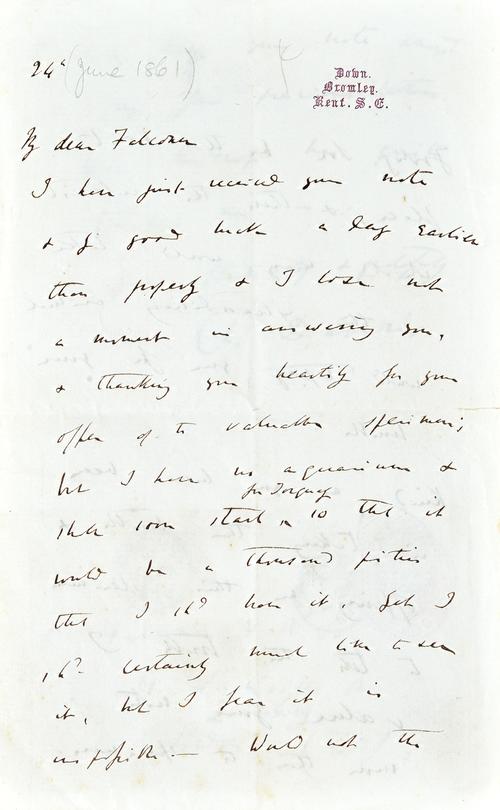 24th (June 1861)
Down.
Bromley.
Kent. S. E.
My dear Falconer
I have just received your note
& by good luck a day earlier
than properly & I lose not
a moment in answering you,
& thanking you heartily for your
offer of the valuable specimen;
but I have no aquarium &
shall soon start for Torquay, so that it
would be a thousand pities
that I shd have it. Yet I
shd. certainly much like to see
it, but I fear it is
impossible. — Would not the